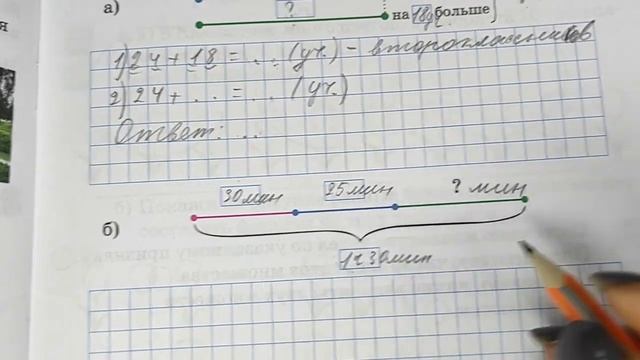 а)
?
на 18уч больше
1) 24 + 18 = . . (уч.) – второклассников
2) 24 + . . = . . (уч.)
Ответ: . .
30мин 25мин ? мин
б)
1ч 30мин